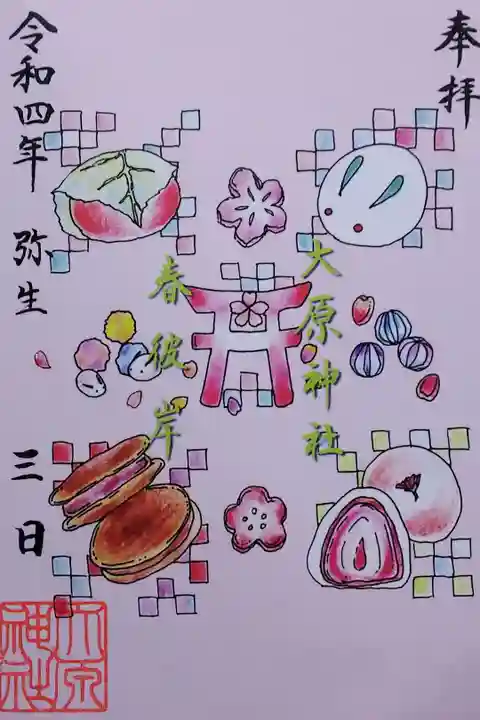 奉拝
大原神社
春彼岸
令和四年 弥生 三日
大原
神社